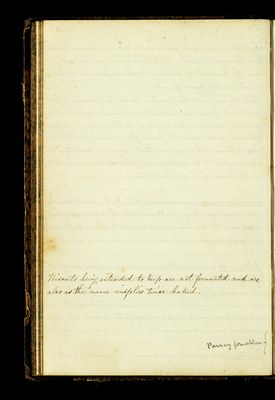 Biscuits being intended to keep are not fermented and are
also as the name implies twice baked.